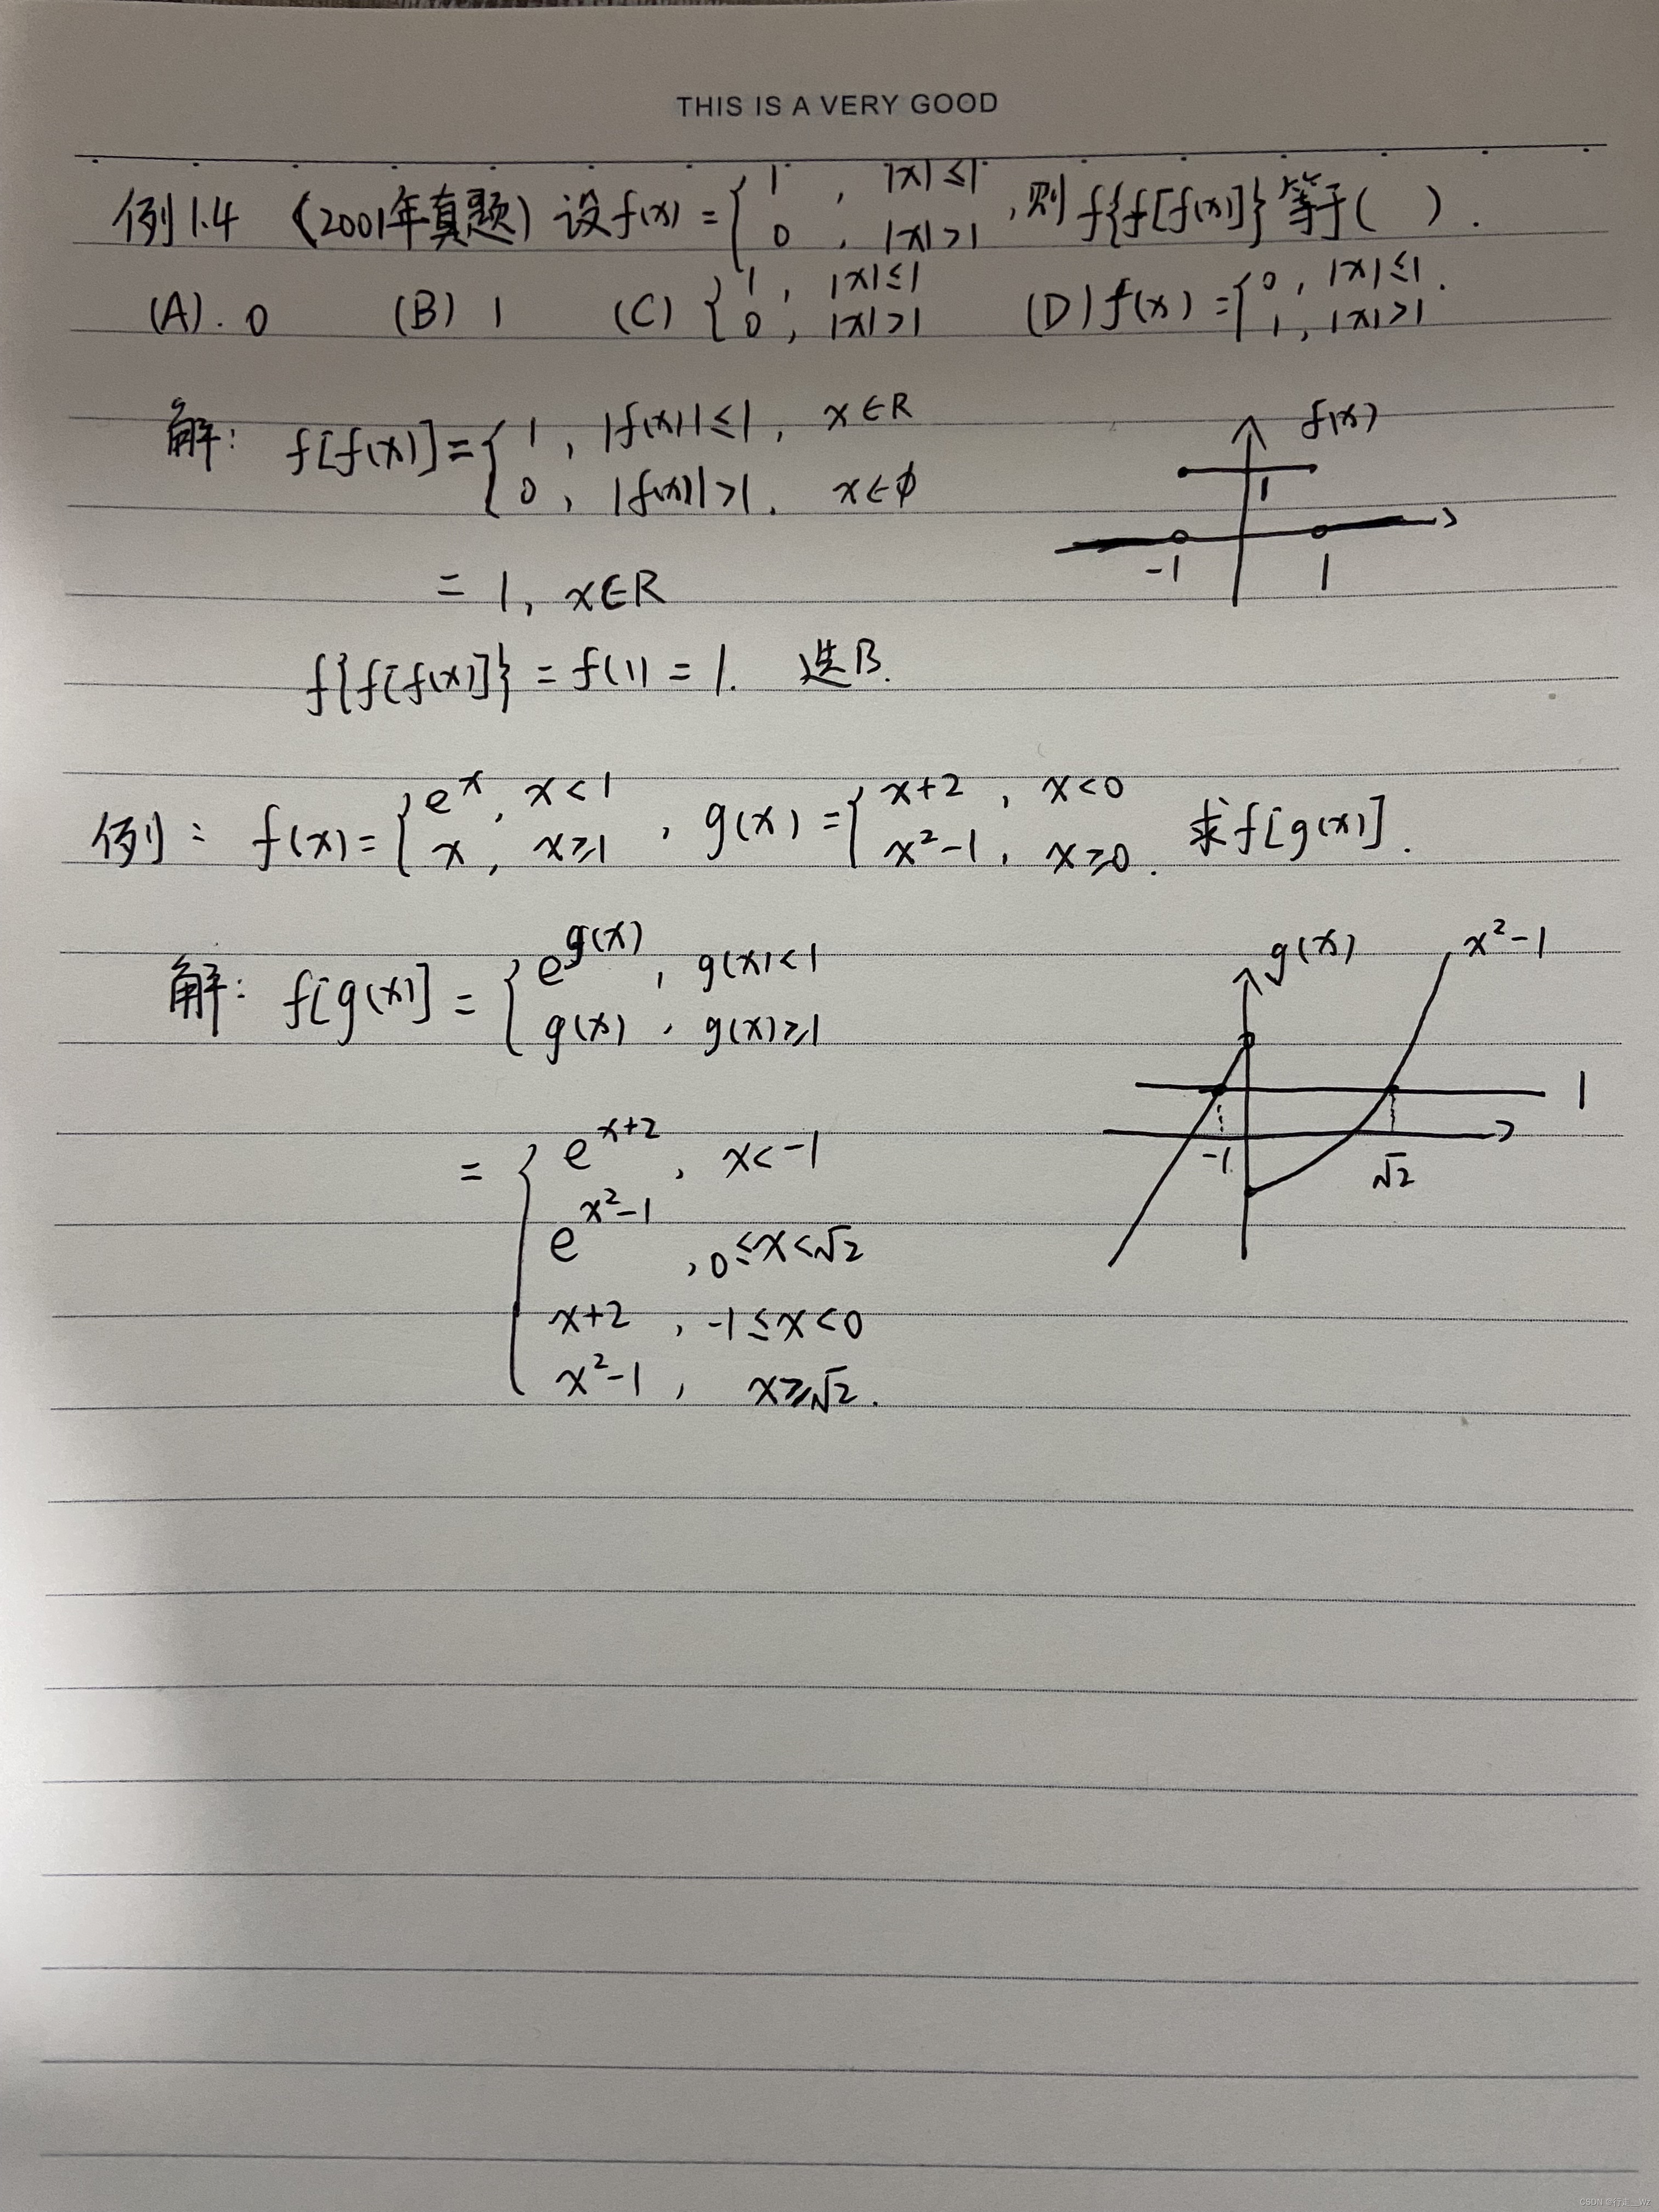 THIS IS A VERY GOOD
例1.4 (2001年真题) 设f(x) = { 1 , |x|≤1
0 , |x|>1 , 则 f{f[f(x)]} 等于( ) .
(A). 0 (B) 1 (C) { 1 , |x|≤1
0 , |x|>1 (D) f(x) = { 0 , |x|≤1 .
1 , |x|>1
解: f[f(x)] = { 1 , |f(x)|≤1 , x∈R
0 , |f(x)|>1 . x∈φ
= 1, x∈R
f{f[f(x)]} = f(1) = 1. 选B.
f(x)
1
-1 1
例: f(x) = { e^x , x<1
x , x≥1 , g(x) = { x+2 , x<0
x²-1 , x≥0 . 求f[g(x)] .
解: f[g(x)] = { e^g(x) , g(x)<1
g(x) , g(x)≥1
= { e^x+2 , x<-1
e^x²-1 , 0≤x<√2
x+2 , -1≤x<0
x²-1 , x≥√2 .
g(x) x²-1
1
-1 √2
CSDN @行走__Wz